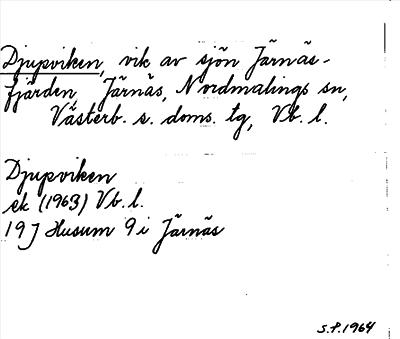 Djupviken, vik av sjön Järnäs-
fjärden, Järnäs, Nordmalings sn,
Västerb. s. doms. tg, Vb. l.
Djupviken
ek (1963) Vb. l.
19 J Husum 9 i Järnäs
S.P. 1964